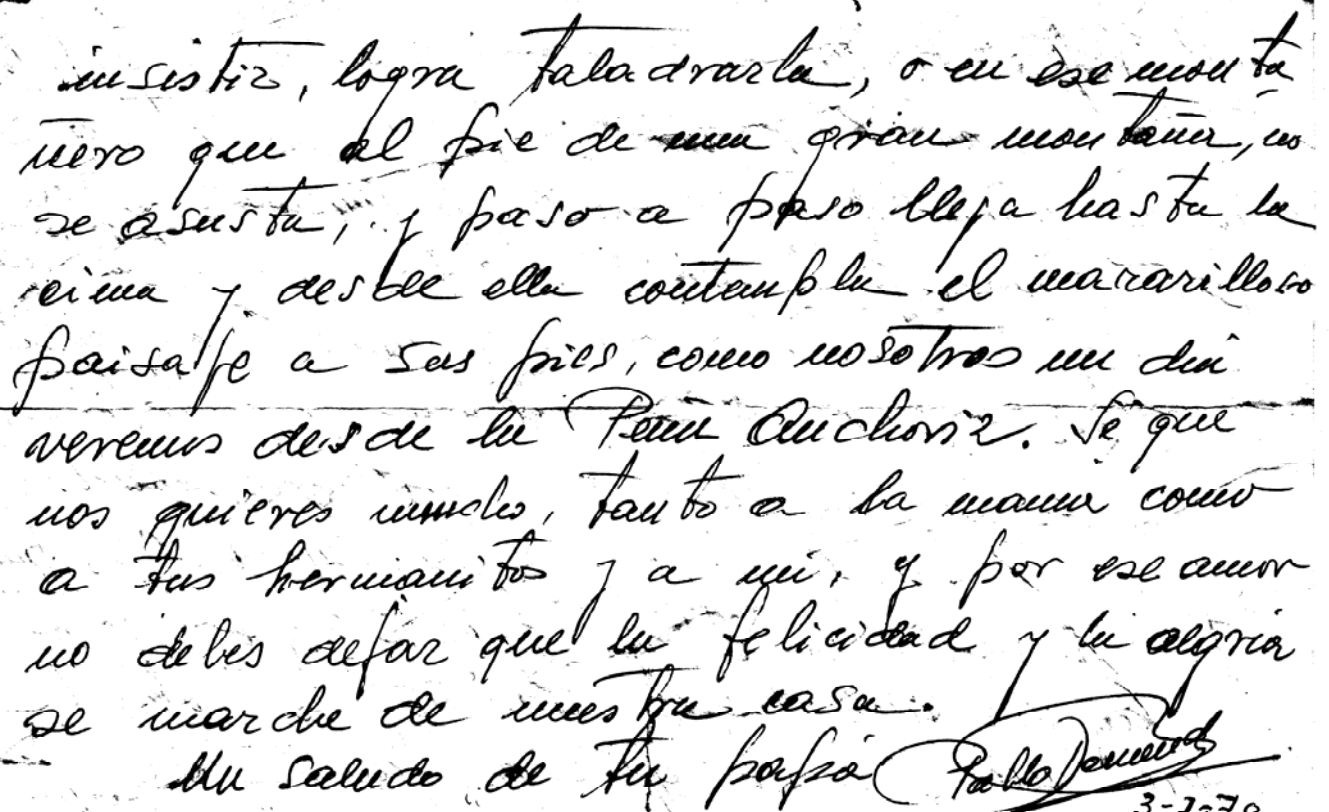 insistir, logra taladrarla, o en ese monta
ñero que al pie de una gran montaña, no
se asusta, y paso a paso llega hasta la
cima y desde ella contempla el maravilloso
paisaje a sus pies, como nosotros un dia
veremos desde la Peña Anchoriz. Sé que
nos quieres mucho, tanto a la mama como
a tus hermanitos y a mi, y por ese amor
no debes dejar que la felicidad y la alegria
se marche de nuestra casa.
Un saludo de tu papá Pablo